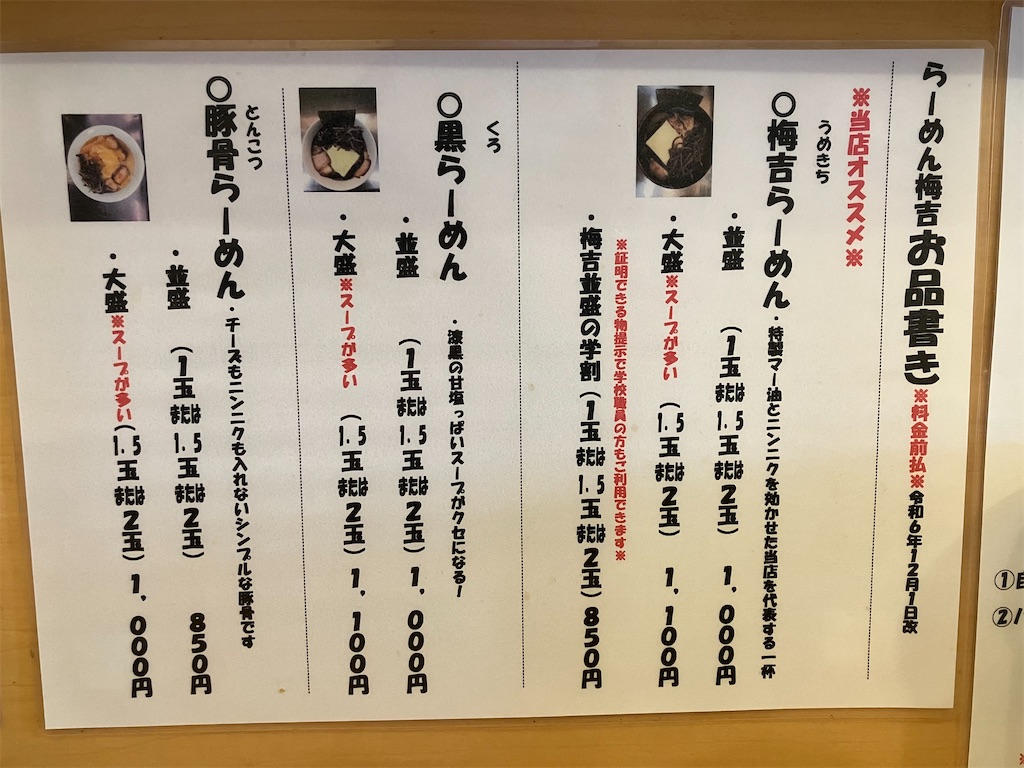 らーめん梅吉お品書き※料金前払※令和6年12月1日改
※当店オススメ※
うめきち
○梅吉らーめん・特製マー油とニンニクを効かせた当店を代表する一杯
・並盛 (1玉または1.5玉または2玉) 1,000円
・大盛※スープが多い (1.5玉または2玉) 1,100円
※証明できる物提示で学校職員の方もご利用できます※
・梅吉並盛の学割(1玉または1.5玉または2玉)850円
くろ
○黒らーめん ・漆黒の甘塩っぱいスープがクセになる!
・並盛 (1玉または1.5玉または2玉) 1,000円
・大盛※スープが多い (1.5玉または2玉) 1,100円
とんこつ
○豚骨らーめん・チーズもニンニクも入れないシンプルな豚骨です
・並盛 (1玉または1.5玉または2玉) 850円
・大盛※スープが多い(1.5玉または2玉) 1,000円
①
②